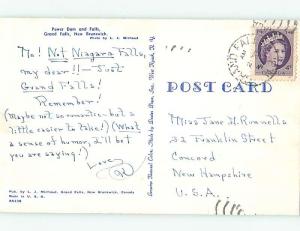 Power Dam and Falls,
Grand Falls, New Brunswick.
Photo by L. J. Michaud
No! Not Niagara Falls,
my dear!! — Just
Grand Falls!
Remember!
(Maybe not so romantic but a
little easier to take!) (What
a sense of humor, I'll bet
you are saying!)
Love,
Pub. by L. J. Michaud, Grand Falls, New Brunswick, Canada
Made in U. S. A.
POST CARD
Miss Jane H. Runnells
32 Franklin Street
Concord
New Hampshire
U.S.A.